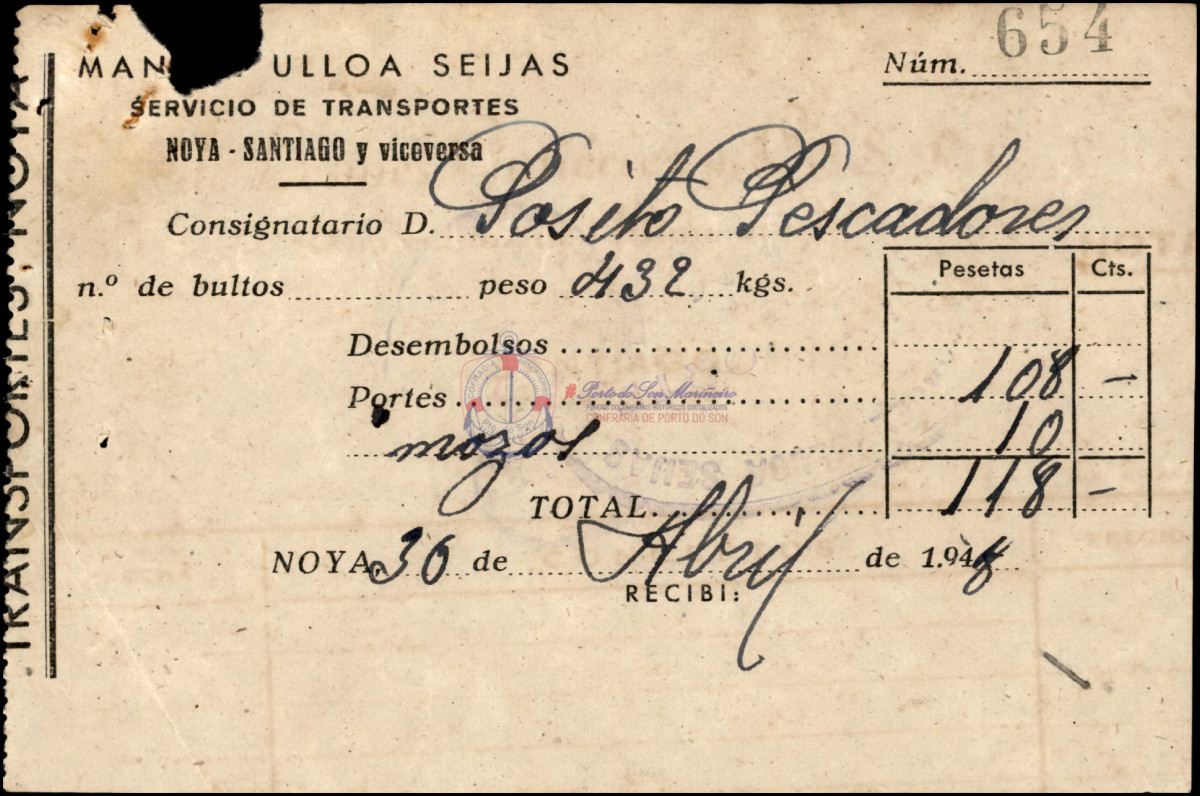 654
Núm.
MAN ULLOA SEIJAS
SERVICIO DE TRANSPORTES
NOYA - SANTIAGO y viceversa
Consignatario D. Posito Pescadores
n.º de bultos peso 432 kgs.
Pesetas Cts.
Desembolsos
Portes 108 —
mozos 10
TOTAL 118 —
NOYA 30 de Abril de 1.948
RECIBI:
TRANSPORTES. NOYA
#Porto do Son Mariñeiro
FONDOS DOCUMENTAIS HISTÓRICOS DIXITALIZADOS
CONFRARÍA DE PORTO DO SON